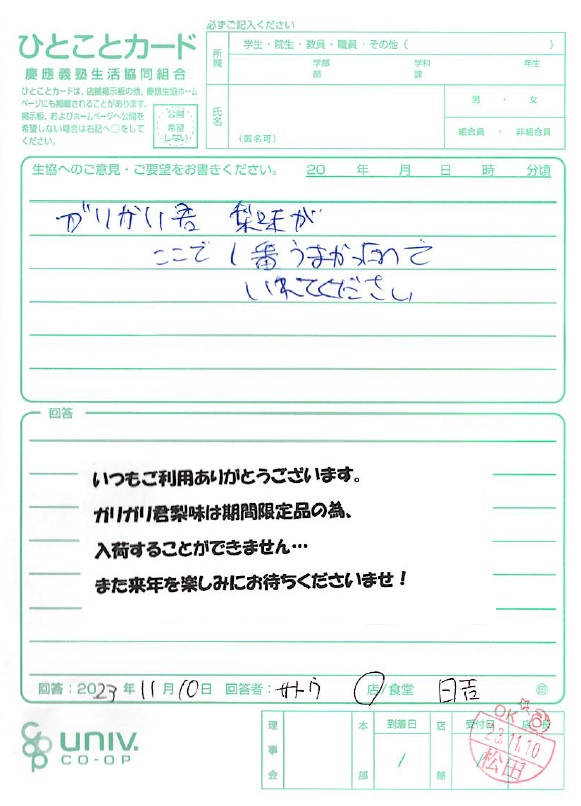 必ずご記入ください
ひとことカード
慶應義塾生活協同組合
ひとことカードは、店舗掲示板の他、慶應生協ホームページにも掲載されることがあります。
掲示板、およびホームページへ公開を
希望しない場合は右記へ○をして
ください。
公開
希望
しない
所属
学生・院生・教員・職員・その他（　　　）
学部　学科　年生
部　課
氏名
（匿名可）
男・女
組合員・非組合員
生協へのご意見・ご要望をお書きください。 20　年　月　日　時　分頃
ガリガリ君 梨味が
ここで1番うまかったので
いれてください
回答
いつもご利用ありがとうございます。
ガリガリ君梨味は期間限定品の為、
入荷することができません…
また来年を楽しみにお待ちくださいませ！
回答：2023年11月10日 回答者：サトウ 店/食堂 日吉 ㊞
UNIV.
CO-OP
理事会
本部
到着日
/
店舗
受付日
/
店長
OK
23.11.10
松田